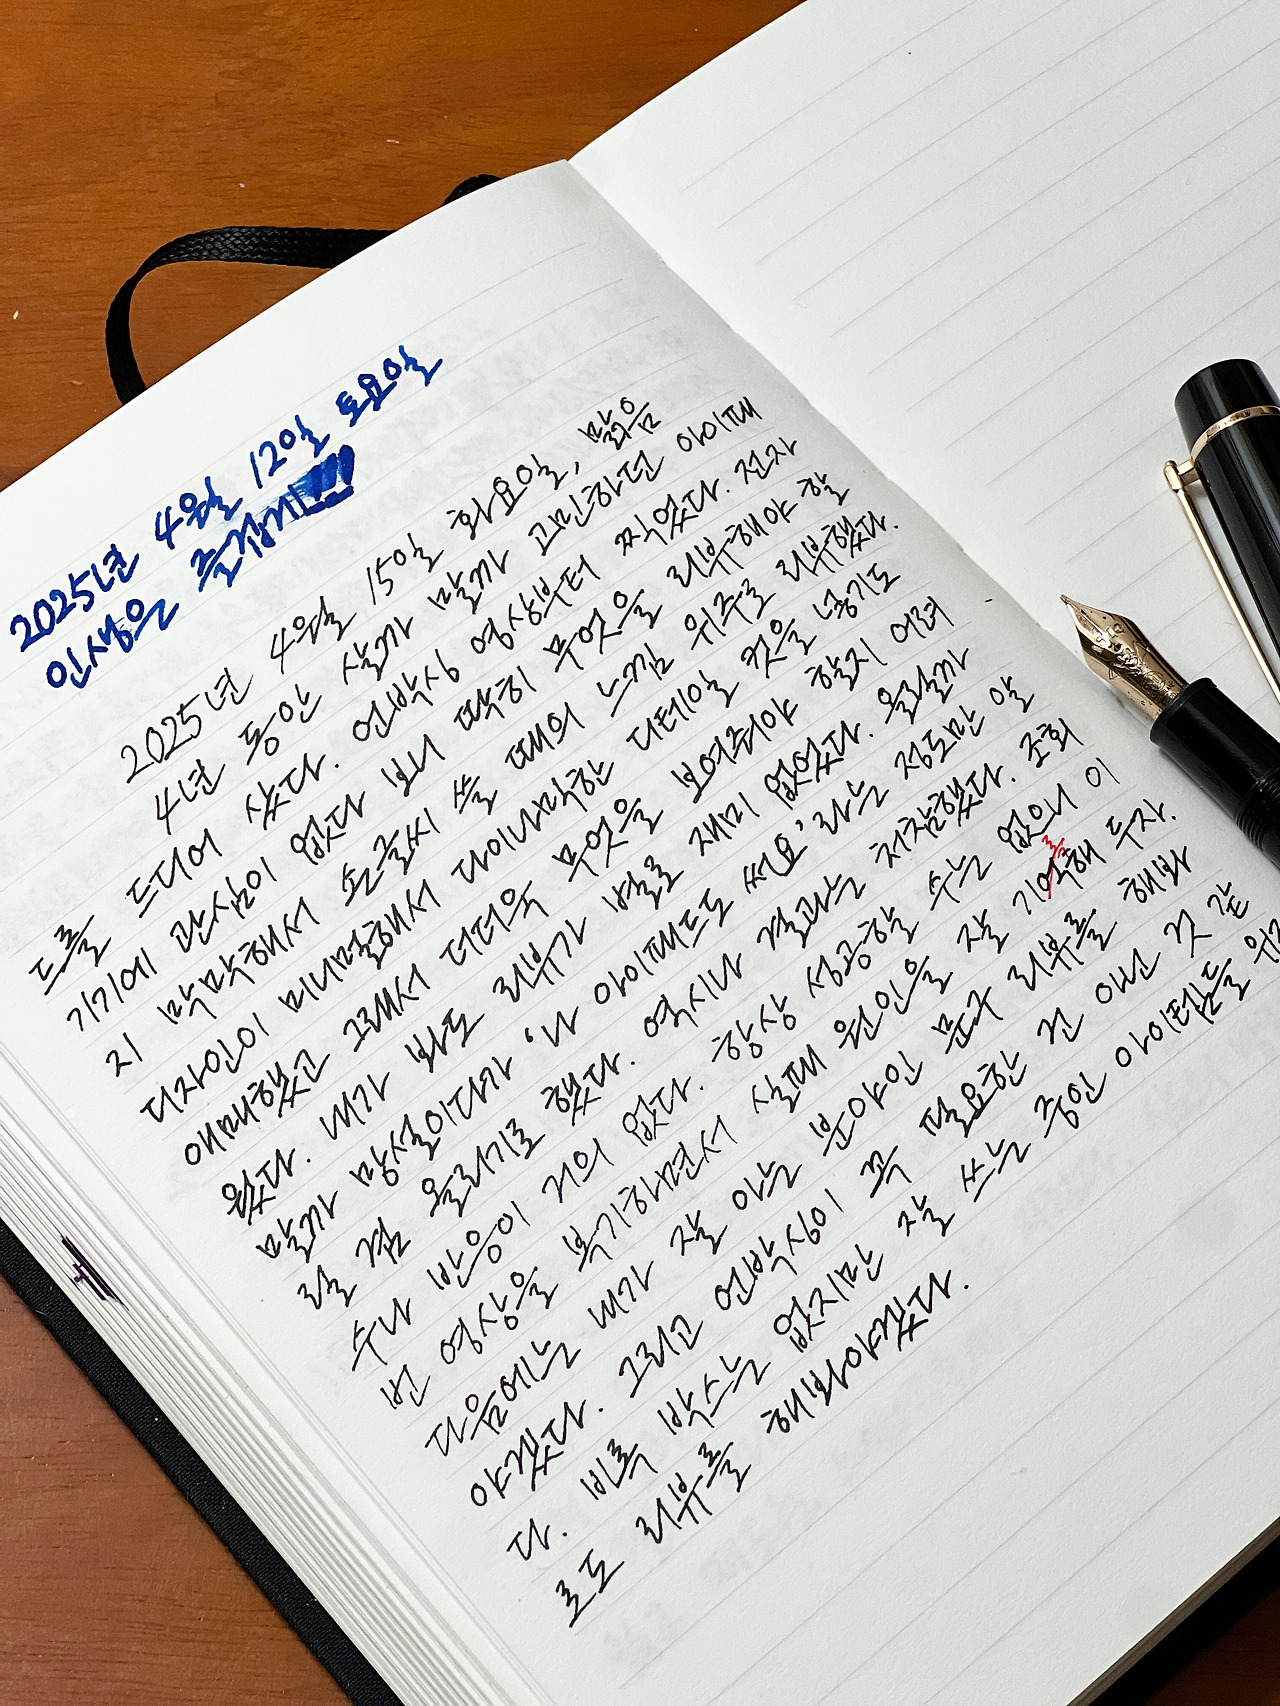 2025년 4월 12일 토요일
인생은 즐겁게!!!
2025년 4월 15일 화요일, 맑음
4년 동안 살까 말까 고민하던 아이패
드를 드디어 샀다. 언박싱 영상부터 찍었다. 전자
기기에 관심이 없다 보니 딱히 무엇을 리뷰해야 할
지 막막해서 손글씨 쓸 때의 느낌 위주로 리뷰했다.
디자인이 미니멀해서 다이나믹한 디테일 컷을 넣기도
애매했고 그래서 더더욱 무엇을 보여줘야 할지 어려
웠다. 내가 봐도 리뷰가 별로 재미 없었다. 올릴까
말까 망설이다가 '나 아이패드도 써요'라는 정도만 알
릴 겸 올리기로 했다. 역시나 결과는 처참했다. 조회
수나 반응이 거의 없다. 항상 성공할 수는 없으니 이
번 영상을 복기하면서 실패 원인을 잘 기억해 두자.
다음에는 내가 잘 아는 분야인 문구 리뷰를 해봐
야겠다. 그리고 언박싱이 꼭 필요한 건 아닌 것 같
다. 비록 박스는 없지만 잘 쓰는 중인 아이템들 위주
로도 리뷰를 해봐야겠다.